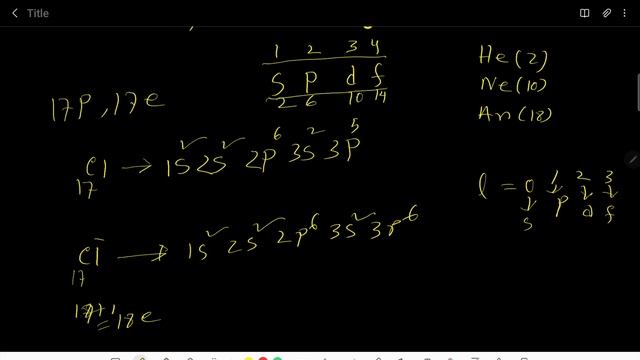 Title
1 2 3 4
s p d f
2 6 10 14
He (2)
Ne (10)
Ar (18)
17P, 17e
₁₇Cl → 1s² 2s² 2p⁶ 3s² 3p⁵
l = 0 1 2 3
s p d f
₁₇Cl⁻ → 1s² 2s² 2p⁶ 3s² 3p⁶
17+1
= 18e